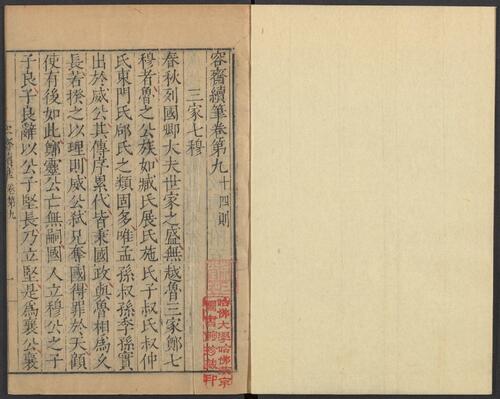 容齋續筆卷第九十四則
三家七穆
春秋列國卿大夫世家之盛無越魯三家鄭七
穆者魯之公族如臧氏展氏施氏子叔氏叔仲
氏東門氏郈氏之類固多唯孟孫叔孫季孫實
出於威公其傳序累代皆秉國政與魯相爲久
長若揆之以理則威公弒兄奪國得罪於天顧
使有後如此鄭靈公亡無嗣國人立穆公之子
子良子良辭以公子堅長乃立堅是爲襄公襄
卷第九
一
哈佛大學哈佛燕京
圖書館珍藏印